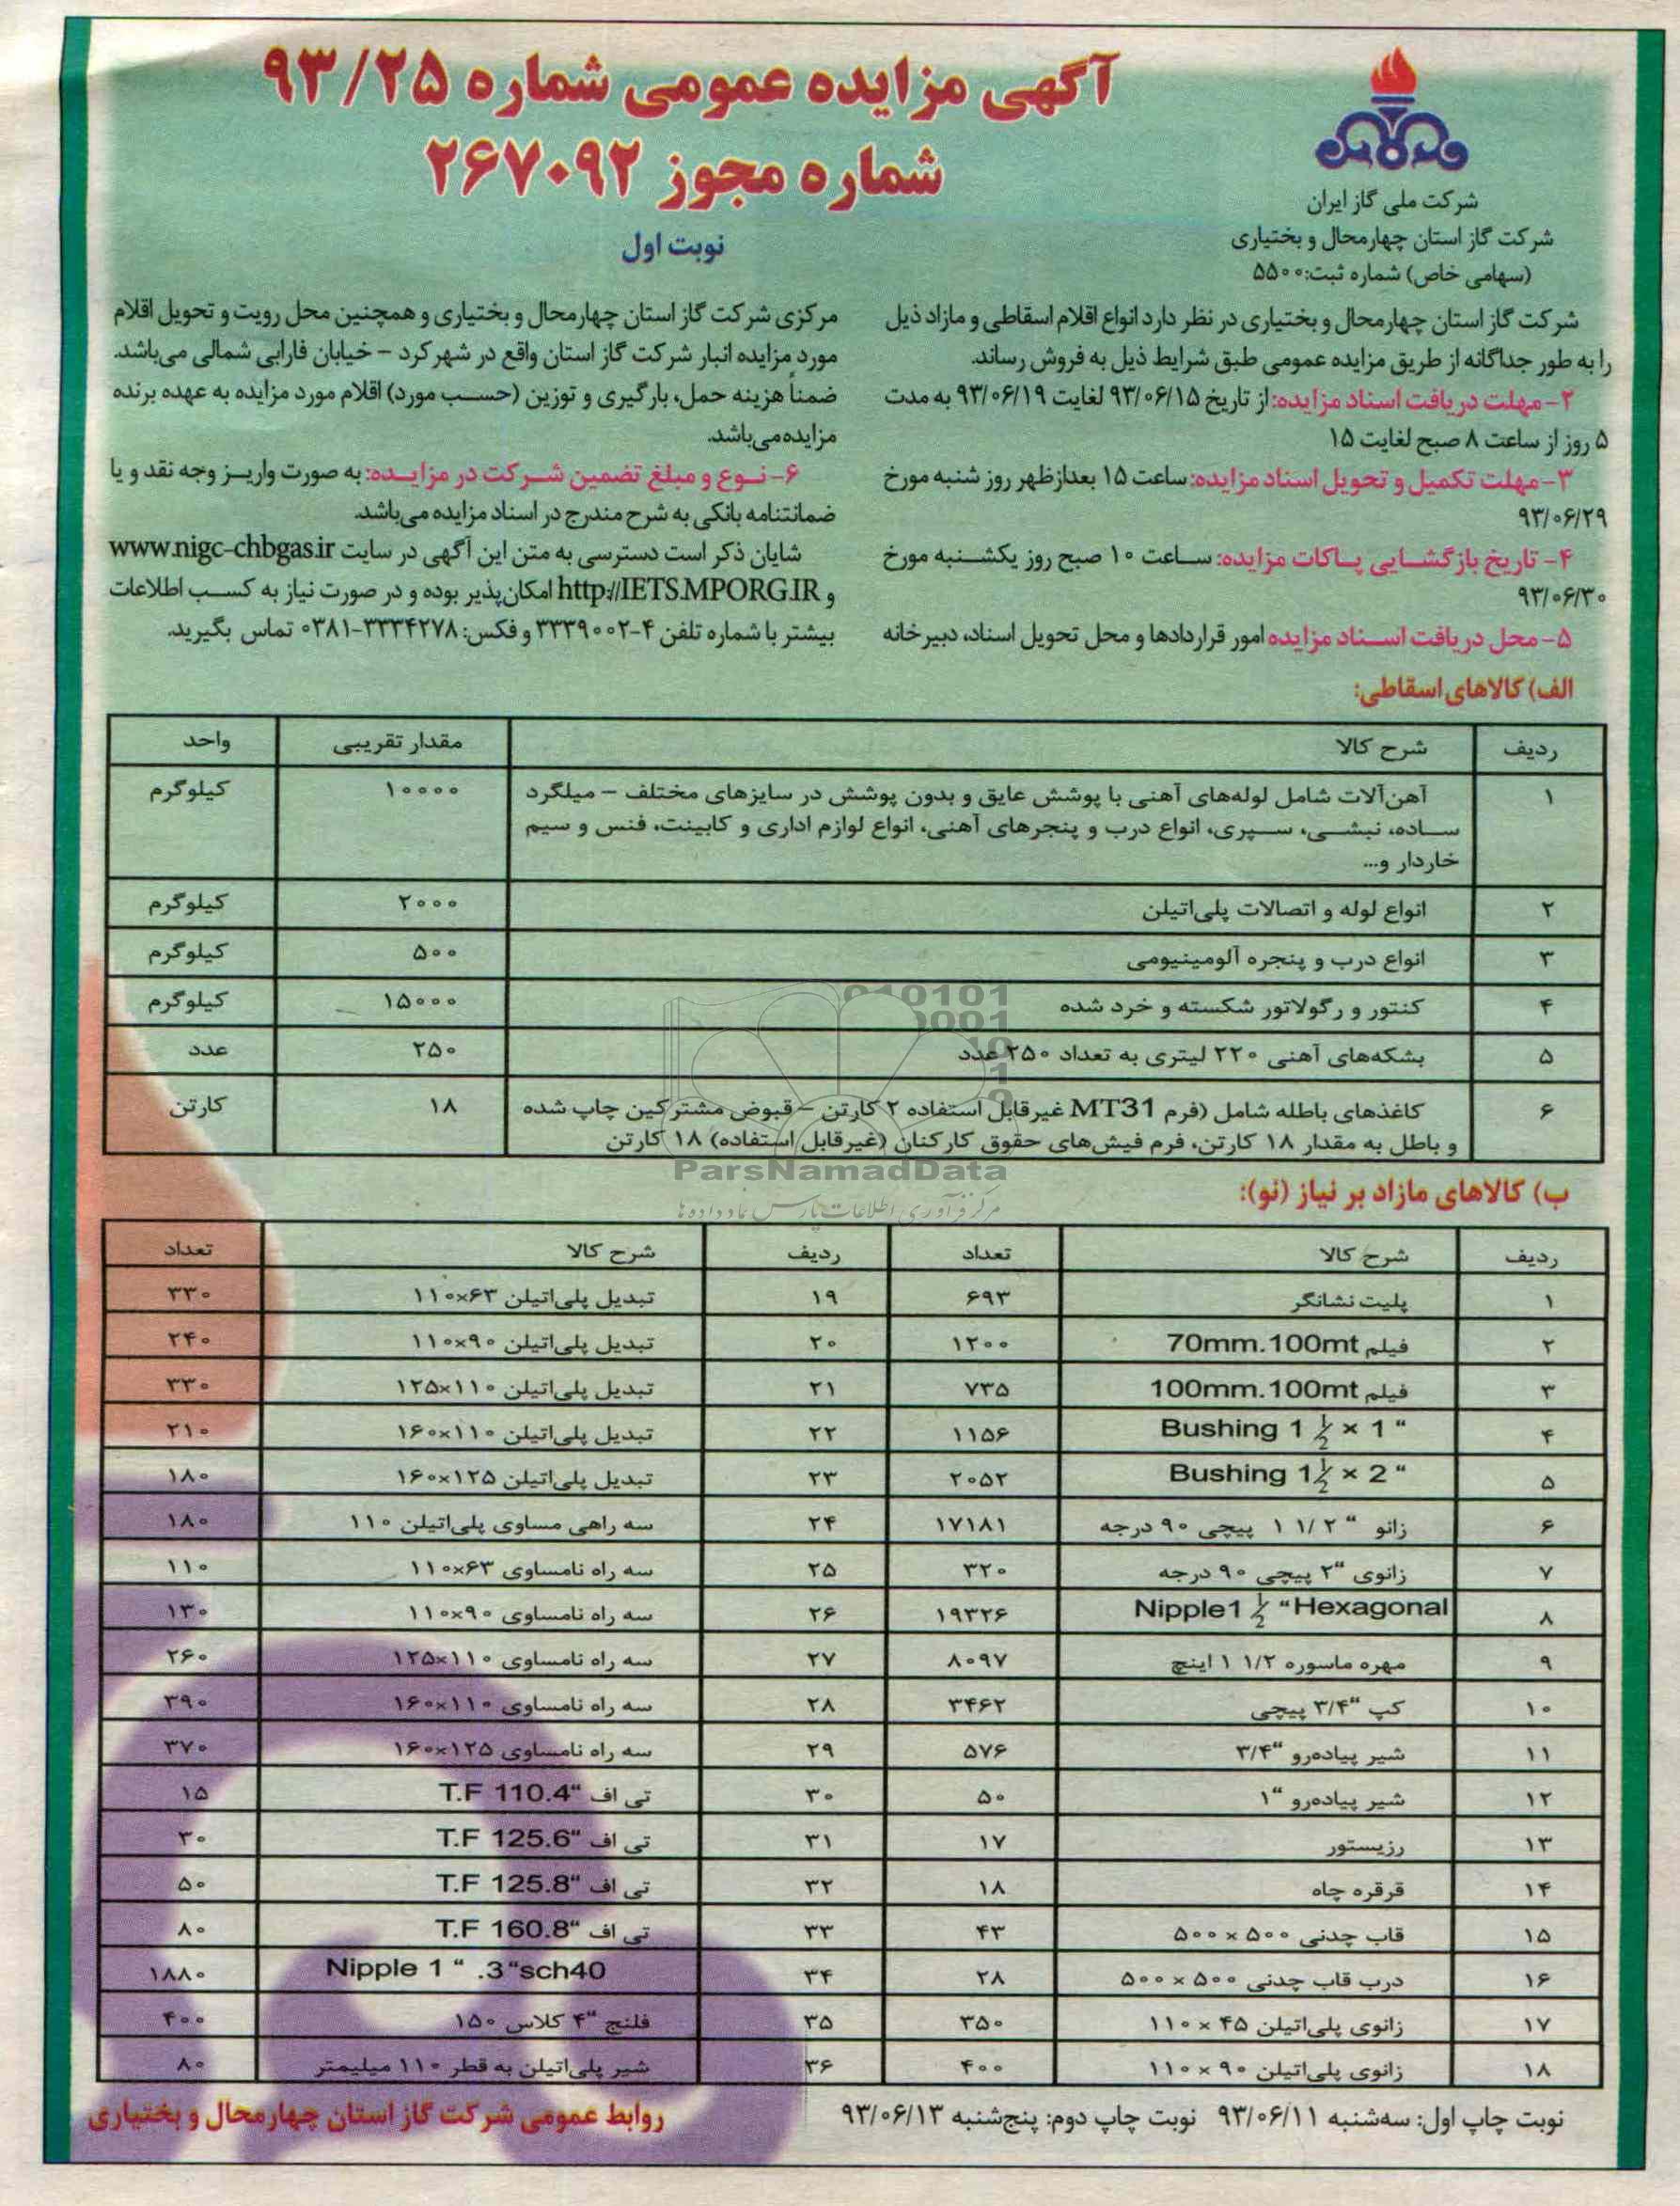 آگهی مزایده عمومی شماره ۹۳/۲۵
شماره مجوز ۲۶۷۰۹۲
نوبت اول
شرکت ملی گاز ایران
شرکت گاز استان چهارمحال و بختیاری
(سهامی خاص) شماره ثبت: ۵۵۰۰
شرکت گاز استان چهارمحال و بختیاری در نظر دارد انواع اقلام اسقاطی و مازاد ذیل
را به طور جداگانه از طریق مزایده عمومی طبق شرایط ذیل به فروش رساند.
۲- مهلت دریافت اسناد مزایده: از تاریخ ۹۳/۰۶/۱۵ لغایت ۹۳/۰۶/۱۹ به مدت
۵ روز از ساعت ۸ صبح لغایت ۱۵
۳- مهلت تکمیل و تحویل اسناد مزایده: ساعت ۱۵ بعدازظهر روز شنبه مورخ
۹۳/۰۶/۲۹
۴- تاریخ بازگشایی پاکات مزایده: ساعت ۱۰ صبح روز یکشنبه مورخ
۹۳/۰۶/۳۰
۵- محل دریافت اسناد مزایده امور قراردادها و محل تحویل اسناد، دبیرخانه
مرکزی شرکت گاز استان چهارمحال و بختیاری و همچنین محل رویت و تحویل اقلام
مورد مزایده انبار شرکت گاز استان واقع در شهرکرد – خیابان فارابی شمالی می‌باشد.
ضمناً هزینه حمل، بارگیری و توزین (حسب مورد) اقلام مورد مزایده به عهده برنده
مزایده می‌باشد.
۶- نوع و مبلغ تضمین شرکت در مزایده: به صورت واریز وجه نقد و یا
ضمانتنامه بانکی به شرح مندرج در اسناد مزایده می‌باشد.
شایان ذکر است دسترسی به متن این آگهی در سایت www.nigc-chbgas.ir
و http://IETS.MPORG.IR امکان‌پذیر بوده و در صورت نیاز به کسب اطلاعات
بیشتر با شماره تلفن ۴-۳۳۳۹۰۰۲ و فکس: ۳۳۳۴۲۷۸-۰۳۸۱ تماس بگیرید.
الف) کالاهای اسقاطی:
ردیف شرح کالا مقدار تقریبی واحد
۱ آهن‌آلات شامل لوله‌های آهنی با پوشش عایق و بدون پوشش در سایزهای مختلف – میلگرد ۱۰۰۰۰ کیلوگرم
ساده، نبشی، سپری، انواع درب و پنجرهای آهنی، انواع لوازم اداری و کابینت، فنس و سیم
خاردار و...
۲ انواع لوله و اتصالات پلی‌اتیلن ۲۰۰۰ کیلوگرم
۳ انواع درب و پنجره آلومینیومی ۵۰۰ کیلوگرم
۴ کنتور و رگولاتور شکسته و خرد شده ۱۵۰۰۰ کیلوگرم
۵ بشکه‌های آهنی ۲۲۰ لیتری به تعداد ۲۵۰ عدد ۲۵۰ عدد
۶ کاغذهای باطله شامل (فرم MT31 غیرقابل استفاده ۲ کارتن – قبوض مشترکین چاپ شده ۱۸ کارتن
و باطل به مقدار ۱۸ کارتن، فرم فیش‌های حقوق کارکنان (غیرقابل استفاده) ۱۸ کارتن
ParsNamadData
مرکز فرآوری اطلاعات پارس نماد داده ها
ب) کالاهای مازاد بر نیاز (نو):
ردیف شرح کالا تعداد ردیف شرح کالا تعداد
۱ پلیت نشانگر ۶۹۳ ۱۹ تبدیل پلی‌اتیلن ۶۳×۱۱۰ ۳۳۰
۲ فیلم 70mm.100mt ۱۲۰۰ ۲۰ تبدیل پلی‌اتیلن ۹۰×۱۱۰ ۲۴۰
۳ فیلم 100mm.100mt ۷۳۵ ۲۱ تبدیل پلی‌اتیلن ۱۱۰×۱۲۵ ۳۳۰
۴ Bushing 1 ½ × 1 “ ۱۱۵۶ ۲۲ تبدیل پلی‌اتیلن ۱۱۰×۱۶۰ ۲۱۰
۵ Bushing 1½ × 2 “ ۲۰۵۲ ۲۳ تبدیل پلی‌اتیلن ۱۲۵×۱۶۰ ۱۸۰
۶ زانو “ ۱/۲ ۱ پیچی ۹۰ درجه ۱۷۱۸۱ ۲۴ سه راهی مساوی پلی‌اتیلن ۱۱۰ ۱۸۰
۷ زانوی “۲ پیچی ۹۰ درجه ۳۲۰ ۲۵ سه راه نامساوی ۶۳×۱۱۰ ۱۱۰
۸ Nipple1 ½ “Hexagonal ۱۹۳۲۶ ۲۶ سه راه نامساوی ۹۰×۱۱۰ ۱۳۰
۹ مهره ماسوره ۱/۲ ۱ اینچ ۸۰۹۷ ۲۷ سه راه نامساوی ۱۱۰×۱۲۵ ۲۶۰
۱۰ کپ “۳/۴ پیچی ۳۴۶۲ ۲۸ سه راه نامساوی ۱۱۰×۱۶۰ ۳۹۰
۱۱ شیر پیاده‌رو “۳/۴ ۵۷۶ ۲۹ سه راه نامساوی ۱۲۵×۱۶۰ ۳۷۰
۱۲ شیر پیاده‌رو “۱ ۵۰ ۳۰ تی اف “T.F 110.4 ۱۵
۱۳ رزیستور ۱۷ ۳۱ تی اف “T.F 125.6 ۳۰
۱۴ قرقره چاه ۱۸ ۳۲ تی اف “T.F 125.8 ۵۰
۱۵ قاب چدنی ۵۰۰ × ۵۰۰ ۴۳ ۳۳ تی اف “T.F 160.8 ۸۰
۱۶ درب قاب چدنی ۵۰۰ × ۵۰۰ ۲۸ ۳۴ Nipple 1 “ .3“sch40 ۱۸۸۰
۱۷ زانوی پلی‌اتیلن ۴۵ × ۱۱۰ ۳۵۰ ۳۵ فلنج “۴ کلاس ۱۵۰ ۴۰۰
۱۸ زانوی پلی‌اتیلن ۹۰ × ۱۱۰ ۴۰۰ ۳۶ شیر پلی‌اتیلن به قطر ۱۱۰ میلیمتر ۸۰
نوبت چاپ اول: سه‌شنبه ۹۳/۰۶/۱۱ نوبت چاپ دوم: پنج‌شنبه ۹۳/۰۶/۱۳
روابط عمومی شرکت گاز استان چهارمحال و بختیاری